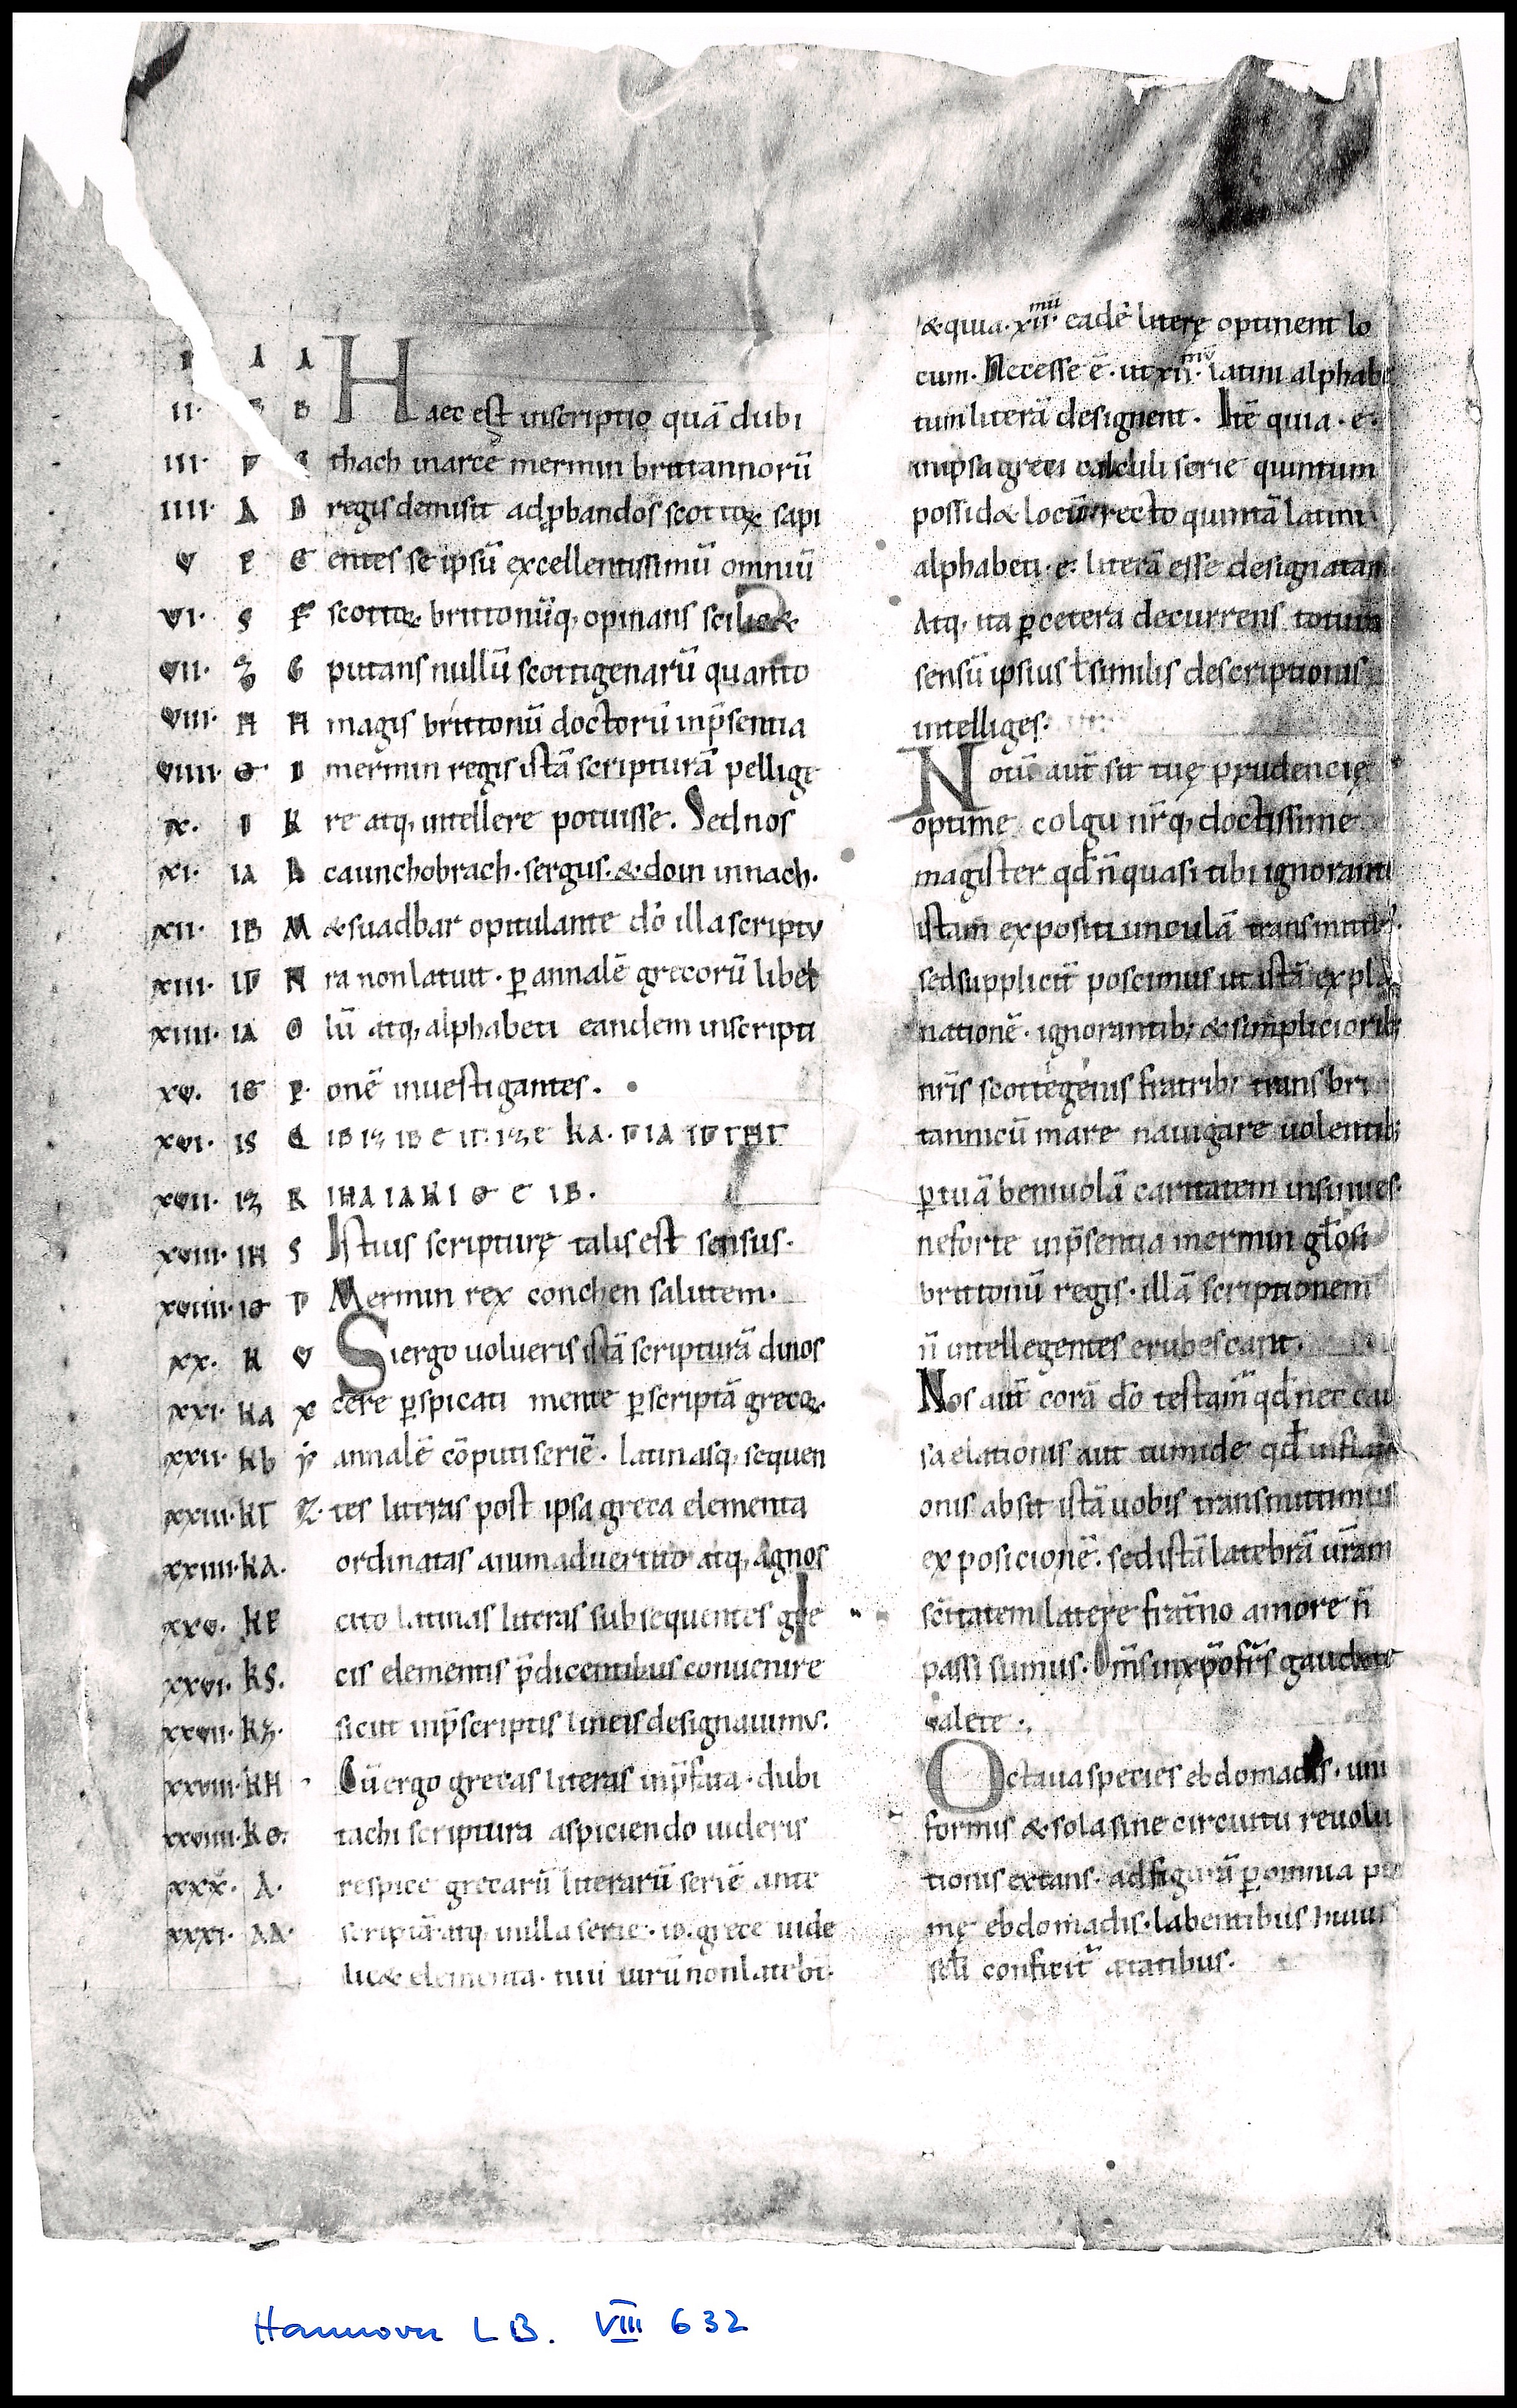 I A A
II. B B
III. Γ
IIII. Δ D
V E E
VI. S F
VII. Z G
VIII. H H
VIIII. Θ I
X. I K
XI. IA L
XII. IB M
XIII. IΓ N
XIIII. IΔ O
XV. IE P.
XVI. IS Q
XVII. IZ R
XVIII. IH S
XVIIII. IΘ T
XX. K V
XXI. KA X
XXII. Kb Y
XXIII. KΓ Z.
XXIIII. KΔ.
XXV. KE
XXVI. KS.
XXVII. KZ.
XXVIII. KH
XXVIIII. KΘ.
XXX. Λ.
XXXI. ΛA.
Haec est inscriptio quā dubi
thach inarcę̄ mermin brittannorū
regis demisit ad ꝓbandos scottoꝝ sapi
entes se ipsū excellentissimū omniū
scottoꝝ brittonūq, opinans scilic&
putans nullū scottigenarū quanto
magis brittonū doctorū inp̄sentia
mermin regis istā scripturā pellige
re atq, intellere potuisse. Sed nos
caunchobrach. fergus. & doin innach.
& suadbar opitulante dō illa scriptu
ra non latuit. ꝑ annalē grecorū libel
lū atq, alphabeti eandem inscripti
onē inuestigantes.
IB IZ IB E IΓ. IZ E KA. Γ IA IΓ Γ H Γ
IH A IA K I Θ E IB.
Istius scripturę talis est sensus.
Mermin rex conchen salutem.
Si ergo uolueris istā scripturā dinos
cere ꝑspicati mente ꝑscriptā grecoꝝ
annalē cōputi seriē. latinasq, sequen
tes literas post ipsa greca elementa
ordinatas animaduertito atq, agnos
cito latinas literas subsequentes gre
cis elementis p̄dicentibus conuenire
sicut inp̄scriptis lineis designauimus.
Cū ergo grecas literas inp̄fata. dubi
tachi scriptura aspiciendo uideris
respice grecarū literarū seriē ante
scriptā atq, in illa serie. ιβ. grece uide
lic& elementa. tui uirū non latebit.
& quia. xii.^mii eadē literę optinent lo
cum. Necesse ē. ut xii.^mā latini alphabe
tum literā designent. Itē quia. e.
in ipsa greci calculi serie quintum
possid& locū. recto quintā latini
alphabeti. e. literā esse designatam.
Atq, ita ꝑ cetera decurrens totum
sensū ipsius ł similis descriptionis
intelliges.
Notū aut̄ sit tuę prudencię
optime colgu nr̄q, doctissime
magister qđ n̄ quasi tibi ignoranti
istam expositiunculā transmitti
sed suppliciť poscimus ut istā expla
nationē. ignorantib; & simplicioribꝫ
nr̄is scottegenis fratrib; trans bri
tannicū mare nauigare uolentib;
ꝑ tuā beniuolā caritatem insinues.
ne forte inp̄sentia mermin gl̄osi
brittonū regis. illā scriptionem
n̄ intellegentes erubescant.
Nos aut̄ corā dō testam̄ qđ nec cau
sa elationis aut tumide qđ inflati
onis absit istā uobis transmittimus
exposicionē. sed istā latebrā ur̄am
sc̄itatem latere frat̄no amore n̄
passi sumus. Om̄s in xp̄o fr̄s gaudete
ualete.,
Octaua species ebdomadis. uni
formis & sola sine circuitu reuolu
tionis extans. ad figurā ꝑ omnia pri
mę ebdomadis. labentibus huius
sc̄li conficit̄ ætatibus.
Hannover LB. VIII 632